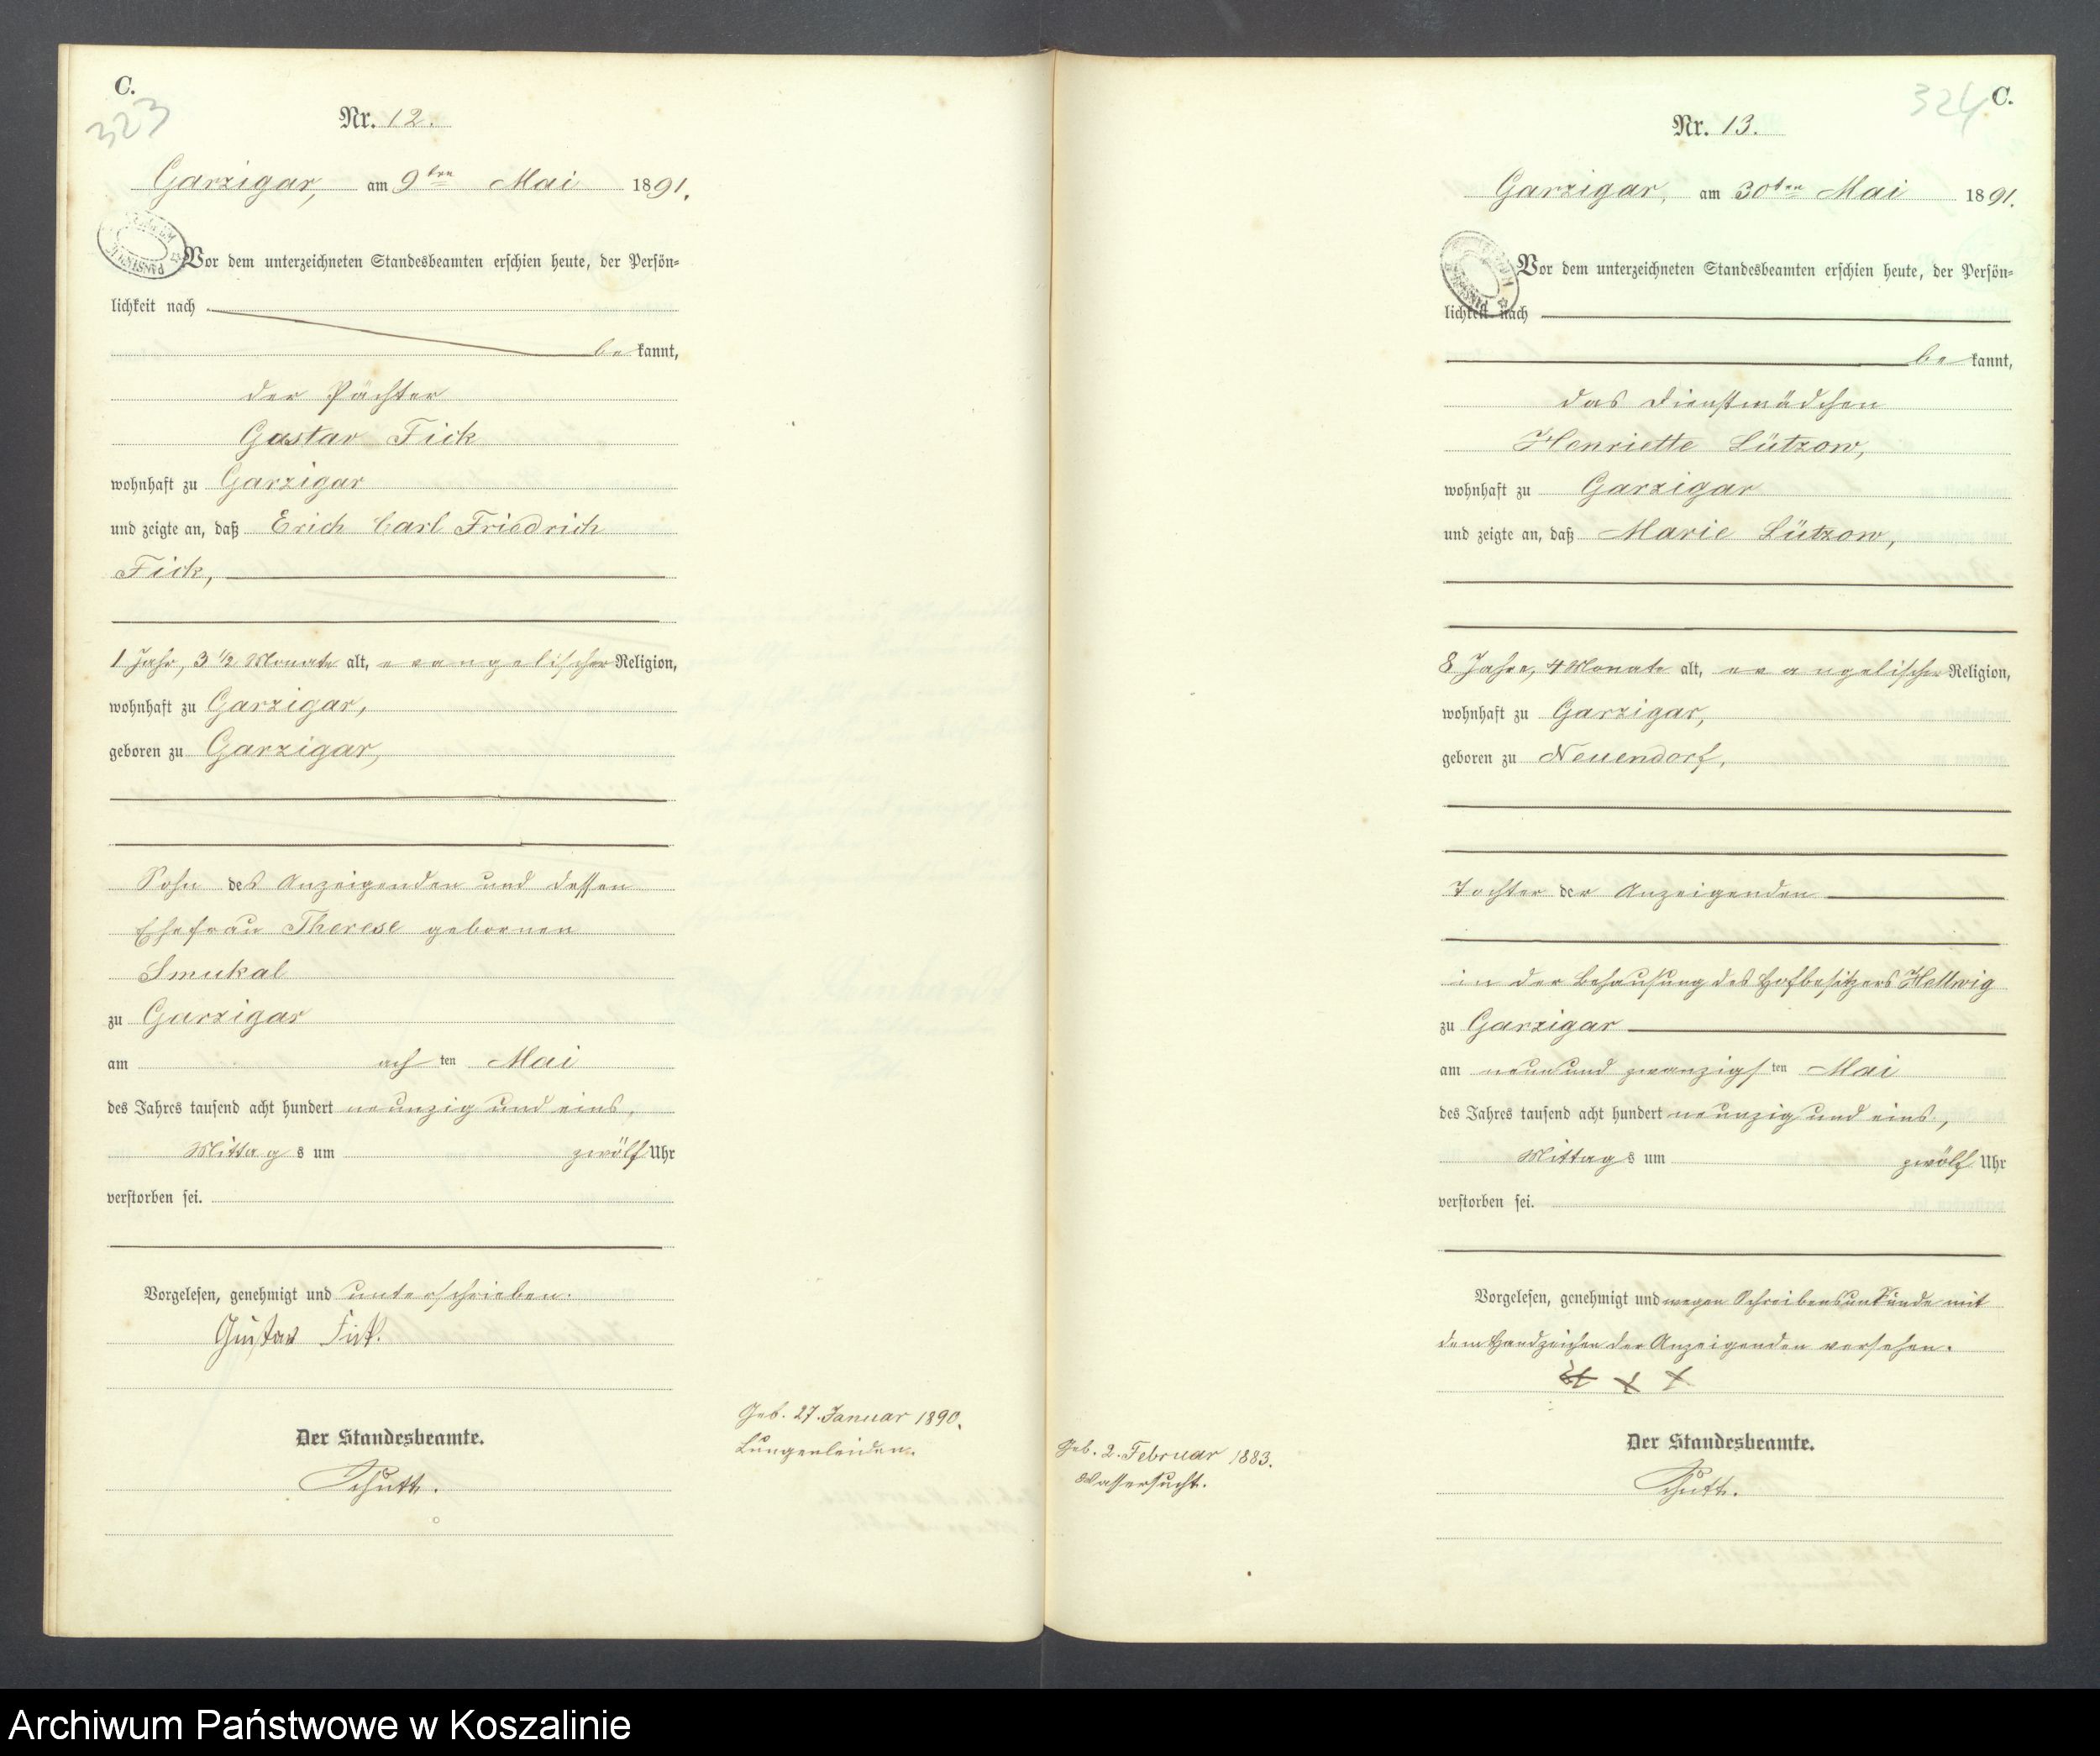 C.
323
Nr. 12.
Garzigar, am 9ten Mai 1891.
Vor dem unterzeichneten Standesbeamten erschien heute, der Persön-
lichkeit nach
be kannt,
der Pächter
Gustav Fick
wohnhaft zu Garzigar
und zeigte an, daß Erich Carl Friedrich
Fick,
1 Jahr, 3 ½ Monate alt, evangelischer Religion,
wohnhaft zu Garzigar,
geboren zu Garzigar,
Sohn des Anzeigenden und dessen
Ehefrau Therese gebornen
Smukal
zu Garzigar
am ach ten Mai
des Jahres tausend acht hundert neunzig und eins,
Mittag s um zwölf Uhr
verstorben sei.
Vorgelesen, genehmigt und unterschrieben.
Gustav Fick.
Der Standesbeamte.
Schutt.
Geb. 27. Januar 1890.
Lungenleiden.
324 C.
Nr. 13.
Garzigar, am 30ten Mai 1891.
Vor dem unterzeichneten Standesbeamten erschien heute, der Persön-
lichkeit nach
be kannt,
das Dienstmädchen
Henriette Lützow,
wohnhaft zu Garzigar
und zeigte an, daß Marie Lützow,
8 Jahre, 4 Monate alt, evangelischer Religion,
wohnhaft zu Garzigar,
geboren zu Neuendorf,
Tochter der Anzeigenden
in der Behausung des Hofbesitzers Hellwig
zu Garzigar
am neunundzwanzigs ten Mai
des Jahres tausend acht hundert neunzig und eins,
Mittag s um zwölf Uhr
verstorben sei.
Vorgelesen, genehmigt und wegen Schreibensunkunde mit
dem Handzeichen der Anzeigenden versehen.
+ + +
Der Standesbeamte.
Schutt.
Geb. 2. Februar 1883.
Wassersucht.
Archiwum Państwowe w Koszalinie